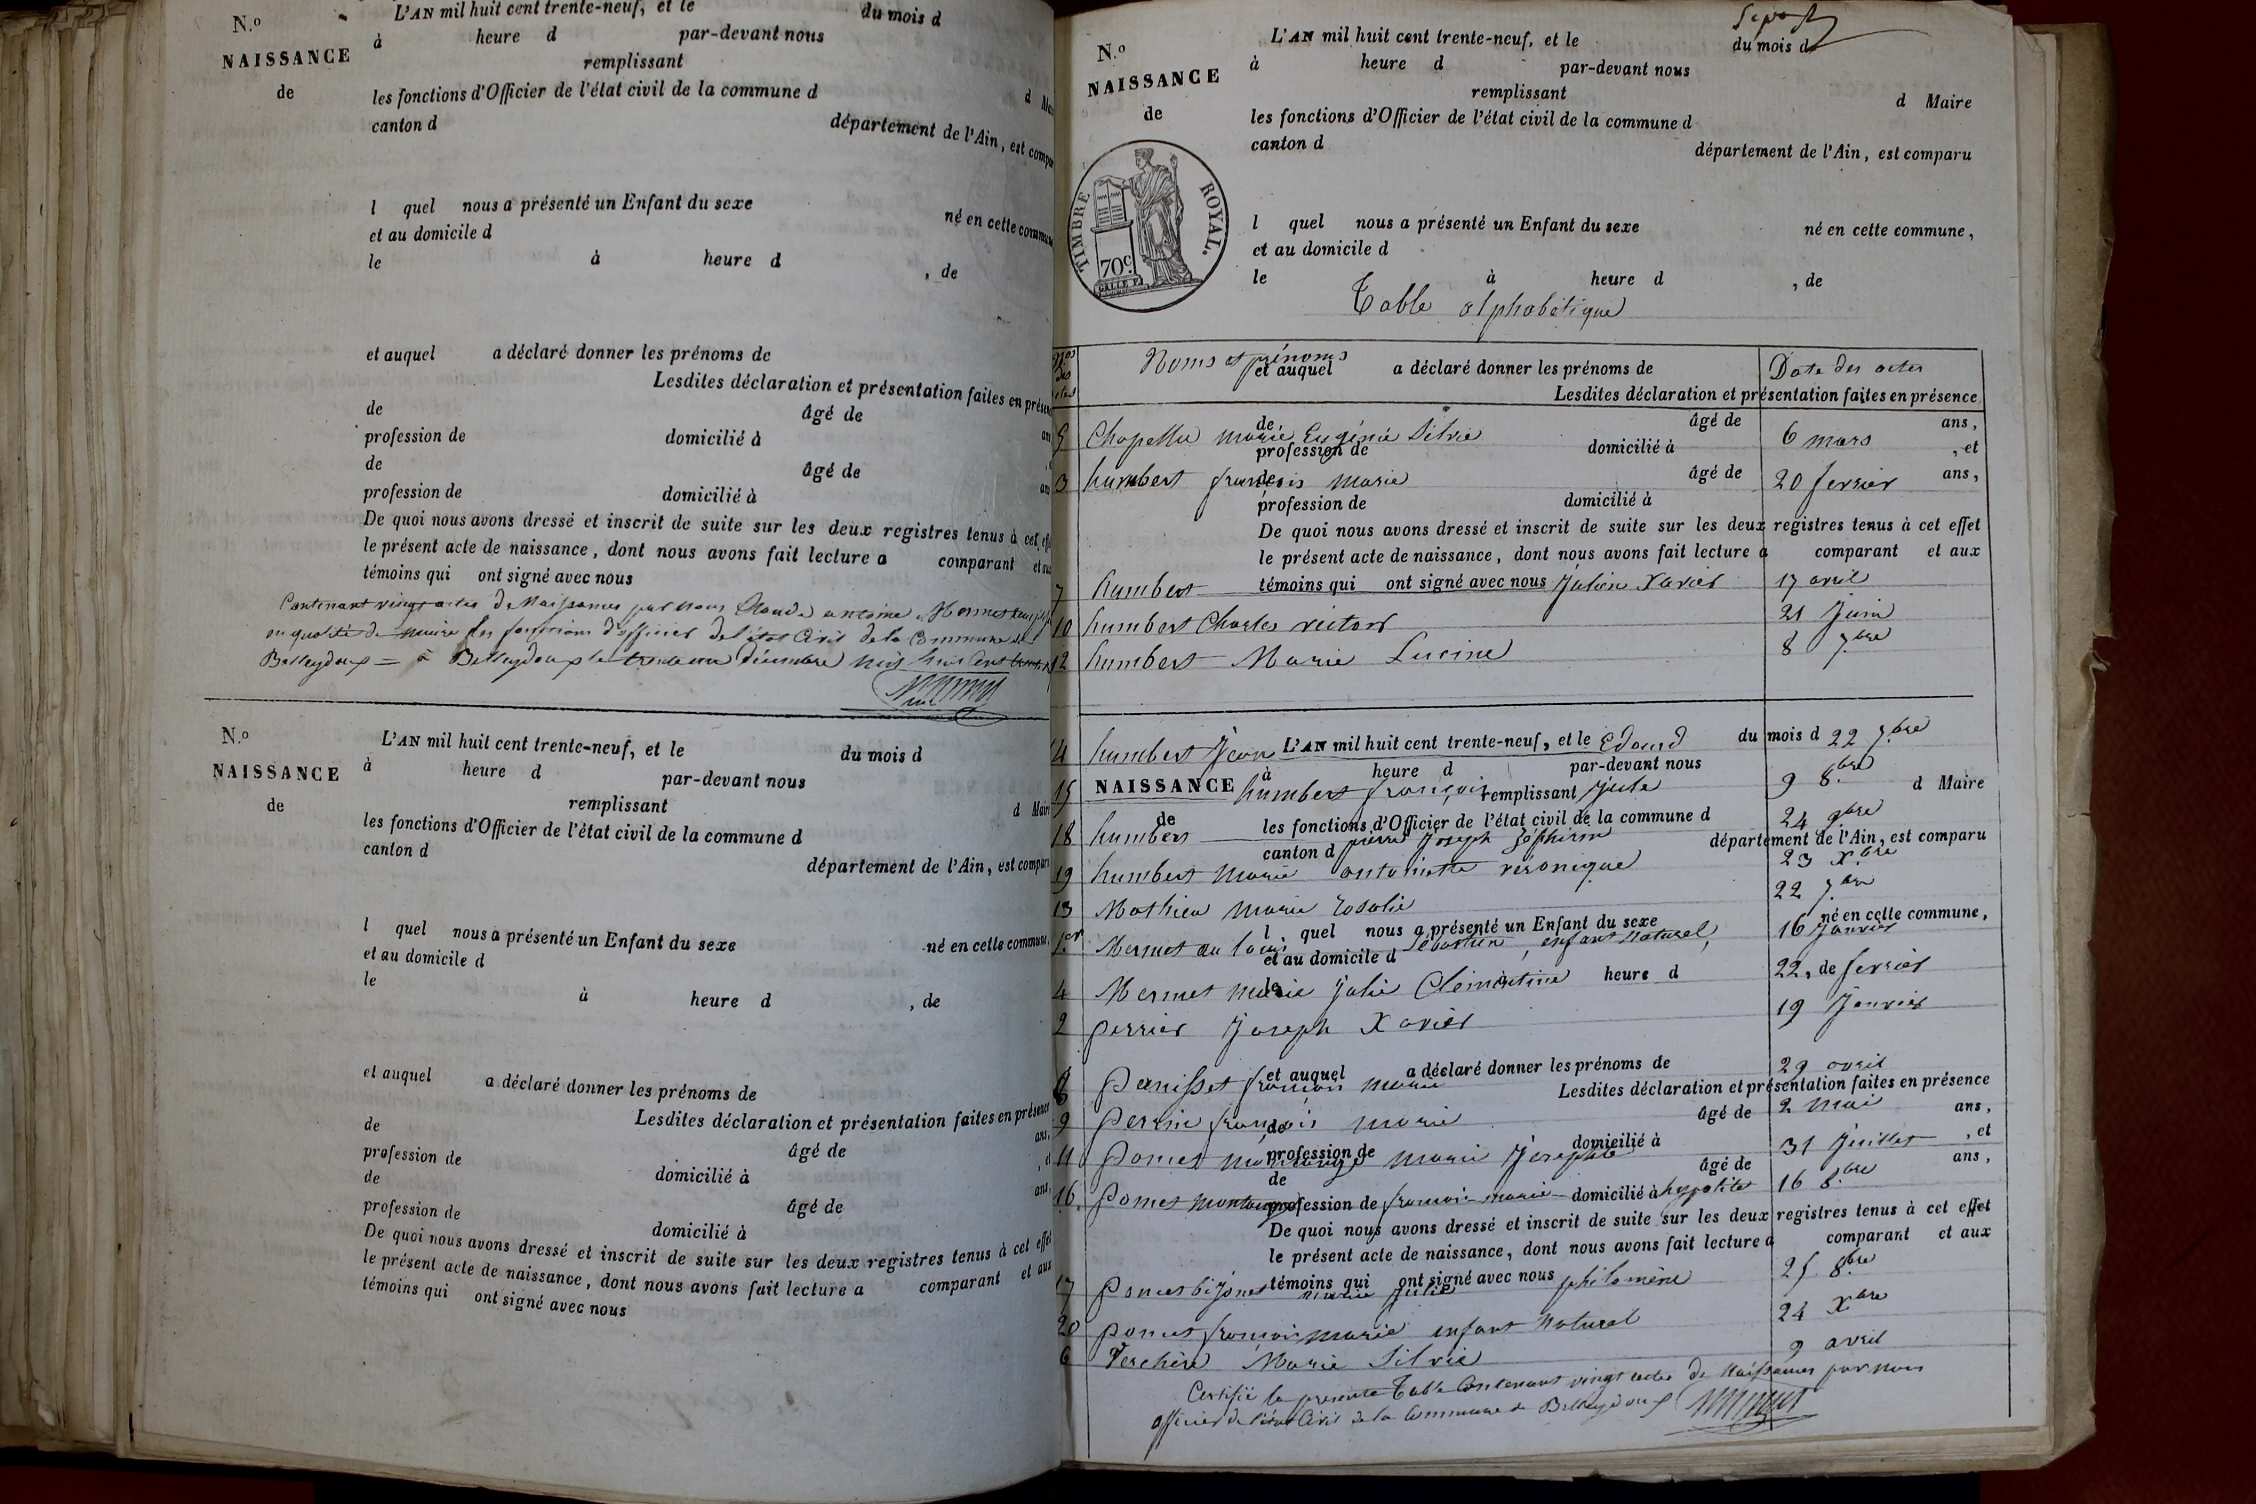 N.º
NAISSANCE
de
L'AN mil huit cent trente-neuf, et le du mois d
à heure d par-devant nous
remplissant
d Mai
les fonctions d'Officier de l'état civil de la commune d
canton d
département de l'Ain, est compa
l quel nous a présenté un Enfant du sexe
né en cette commune
et au domicile d
le à heure d , de
et auquel a déclaré donner les prénoms de
Lesdites déclaration et présentation faites en présence
de âgé de ans
profession de domicilié à
de âgé de ans
profession de domicilié à
De quoi nous avons dressé et inscrit de suite sur les deux registres tenus à cet effe
le présent acte de naissance, dont nous avons fait lecture a comparant et aux
témoins qui ont signé avec nous
Contenant vingt actes de Naissances par nous Claude antoine Mermet
en qualité de maire les fonctions d'officier de l'état Civil de la Commune de
Belleydoux = à Belleydoux le trente un décembre mil huit Cent
N.º
NAISSANCE
de
L'AN mil huit cent trente-neuf, et le du mois d
à heure d par-devant nous
remplissant
d Maire
les fonctions d'Officier de l'état civil de la commune d
canton d
département de l'Ain, est comparu
l quel nous a présenté un Enfant du sexe
né en cette commune,
et au domicile d
le à heure d , de
et auquel a déclaré donner les prénoms de
Lesdites déclaration et présentation faites en présence
de âgé de ans,
profession de domicilié à
de âgé de ans,
profession de domicilié à
De quoi nous avons dressé et inscrit de suite sur les deux registres tenus à cet effet
le présent acte de naissance, dont nous avons fait lecture a comparant et aux
témoins qui ont signé avec nous
N.º
NAISSANCE
de
TIMBRE ROYAL.
70c.
L'AN mil huit cent trente-neuf, et le du mois d
à heure d par-devant nous
remplissant
d Maire
les fonctions d'Officier de l'état civil de la commune d
canton d
département de l'Ain, est comparu
l quel nous a présenté un Enfant du sexe
né en cette commune,
et au domicile d
le à heure d , de
Table alphabétique
Nos des actes Noms et prénoms Date des actes
et auquel a déclaré donner les prénoms de
Lesdites déclaration et présentation faites en présence
de âgé de ans,
5 Chapellu marie Eugénie Silvie 6 mars
profession de domicilié à , et
3 humbert francois Marie 20 fevrier
de âgé de ans,
profession de domicilié à
De quoi nous avons dressé et inscrit de suite sur les deux registres tenus à cet effet
le présent acte de naissance, dont nous avons fait lecture a comparant et aux
témoins qui ont signé avec nous
7 humbert Julien Xavier 17 avril
10 humbert Charles victor 21 Juin
12 humbert Marie Lucine 8 7bre
14 humbert Jean Edouard 22 7bre
L'AN mil huit cent trente-neuf, et le du mois d
à heure d par-devant nous
NAISSANCE
15 humbert françois Jule 9 8bre
remplissant d Maire
de
les fonctions d'Officier de l'état civil de la commune d
18 humbert pierre Joseph Séphirin 24 9bre
canton d département de l'Ain, est comparu
19 humbert Marie antoinette véronique 23 Xbre
13 Mathieu Marie Rosalie 22 7bre
l quel nous a présenté un Enfant du sexe né en cette commune,
1er Mermet au louis Sébastien, enfant Naturel, 16 Janvier
et au domicile d
4 Mermet Marie Julie Clémentine 22 fevrier
le heure d , de
2 perrier Joseph Xavier 19 Janvier
et auquel a déclaré donner les prénoms de
8 Panisset françois marie 29 avril
Lesdites déclaration et présentation faites en présence
9 Perrin françois Marie 2 Mai
de âgé de ans,
11 Poncet montange Marie Josephte 31 Juillet
profession de domicilié à , et
de âgé de ans,
16 Poncet montange francois marie hypolite 16 8bre
profession de domicilié à
De quoi nous avons dressé et inscrit de suite sur les deux registres tenus à cet effet
le présent acte de naissance, dont nous avons fait lecture a comparant et aux
témoins qui ont signé avec nous
17 Poncet bijonet marie Julie philomène 25 8bre
20 poncet francois Marie enfant Naturel 24 Xbre
6 Verchère Marie Silvie 9 avril
Certifié la presente Table Contenant vingt actes de Naissances par nous
officier de l'état Civil de la Commune de Belleydoux